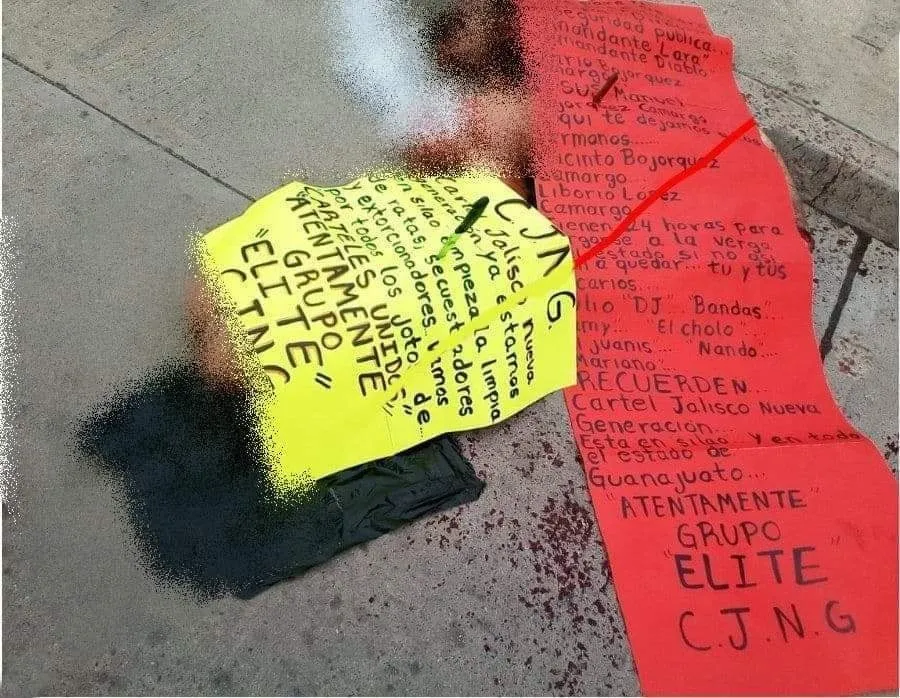 C.J.N.G.
Jalisco nueva
ya estamos
en silao. empeza la limpia
de ratas, secuestradores
y extorcionadores, vimos
por todos los joto. de
"CARTELES UNIDOS"
"ATENTAMENTE"
GRUPO
"ELITE"
C J N G
seguridad publica...
mandante Lara"
mandante Diablo"
Bojorquez
amargo
SUS Manuel
Camargo
qui te dejamos
ermanos...
acinto Bojorquez
amargo...
Liborio López
Camargo
ienen 24 horas para
rgarse a la verga
estado si no asi
a quedar... tu y tus
carios...
lio "DJ" "Bandas"
amy... "El cholo"
juanis... "Nando...
Mariano...
RECUERDEN...
Cartel Jalisco Nueva
Generación...
Esta en silao y en todo
el estado de
Guanajuato...
"ATENTAMENTE"
GRUPO
"ELITE
C.J.N.G